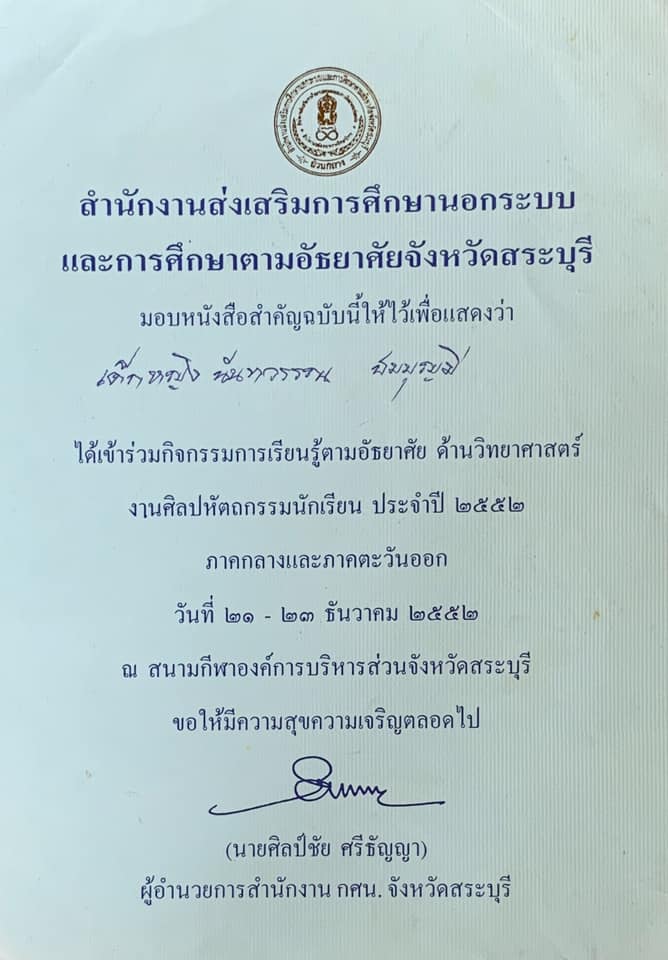 สำนักงานส่งเสริมการศึกษานอกระบบ
และการศึกษาตามอัธยาศัยจังหวัดสระบุรี
มอบหนังสือสำคัญฉบับนี้ให้ไว้เพื่อแสดงว่า
เด็กหญิง นันทวรรณ
ได้เข้าร่วมกิจกรรมการเรียนรู้ตามอัธยาศัย ด้านวิทยาศาสตร์
งานศิลปหัตถกรรมนักเรียน ประจำปี ๒๕๕๒
ภาคกลางและภาคตะวันออก
วันที่ ๒๑ - ๒๓ ธันวาคม ๒๕๕๒
ณ สนามกีฬาองค์การบริหารส่วนจังหวัดสระบุรี
ขอให้มีความสุขความเจริญตลอดไป
(นายศิลป์ชัย ศรีธัญญา)
ผู้อำนวยการสำนักงาน กศน. จังหวัดสระบุรี